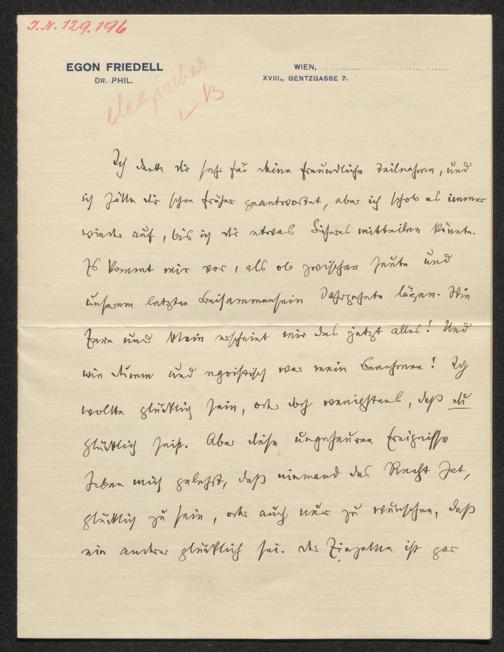 I.N. 129.196
EGON FRIEDELL
DR. PHIL.
WIEN,
XVIII., GENTZGASSE 7.
Ich danke dir sehr für deine freundliche Teilnahme, und
ich hätte dir schon früher geantwortet, aber ich schob es immer
wieder auf, bis ich dir etwas Sicheres mitteilen könnte.
Es kommt mir vor, als ob zwischen heute und
unserem letzten Beisammensein Jahrzehnte lägen. Wie
fern und klein erscheint mir das jetzt alles! Und
wie dumm und egoistisch war mein Benehmen! Ich
wollte glücklich sein, oder doch wenigstens, daß du
glücklich seist. Aber diese ungeheuren Ereignisse
haben mich gelehrt, daß niemand das Recht hat,
glücklich zu sein, oder auch nur zu wünschen, daß
ein anderer glücklich sei. Der Einzelne ist gar